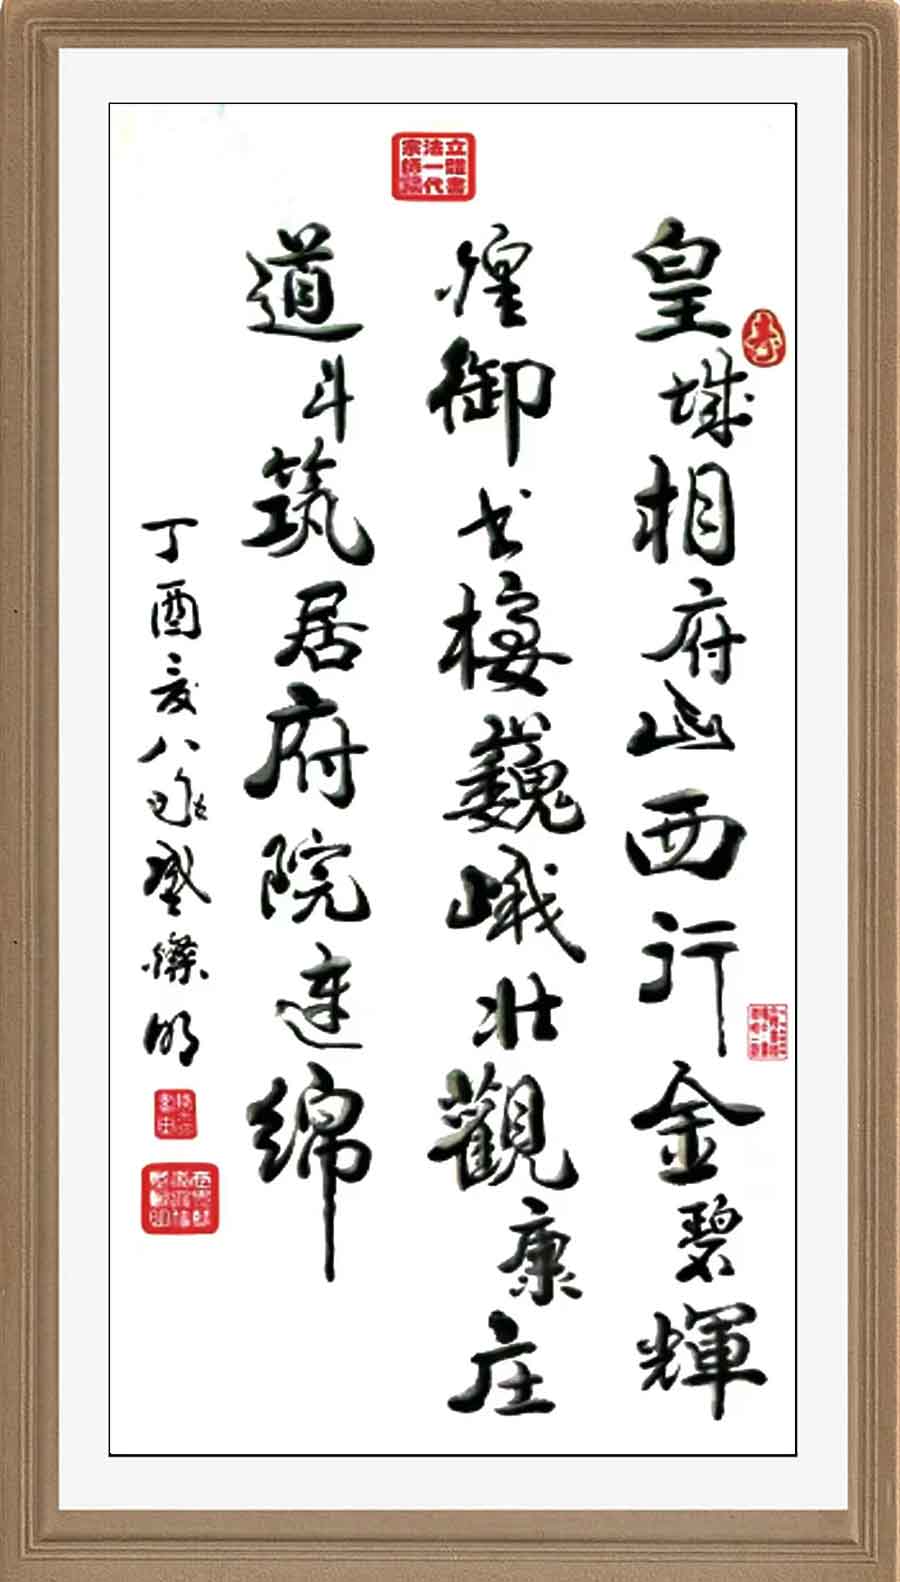 立體書
法一代
宗師
皇城相府山西行金碧輝
煌御书樓巍峨壮觀康庄
道斗筑居府院連綿
丁酉八明